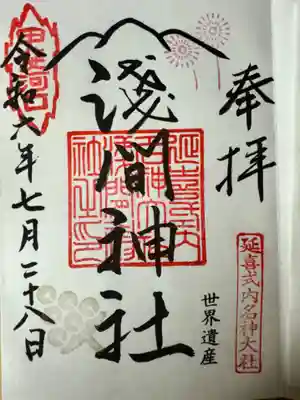 奉拝
延喜式内名神大社
世界遺産
淺間神社
令和六年七月二十八日